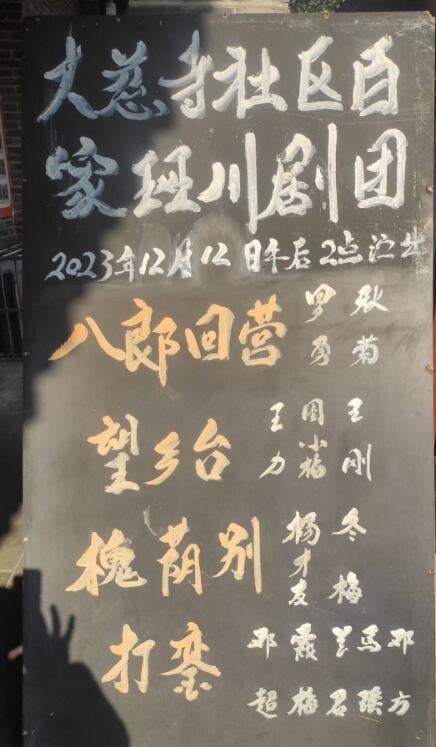 大慈寺社区百
家班川剧团
2023年12月12日午后2点演出
八郎回营 罗勇 秋菊
望乡台 王力 周小梅 王刚
槐荫别 杨才友 冬梅
打銮 邓超 霞梅 兰君 馬瑛 邓方